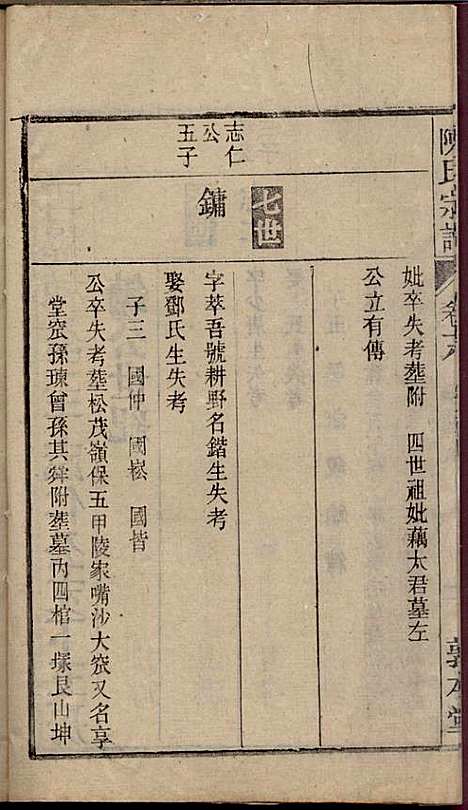 陳氏宗譜
敦本堂
妣卒失考塟附 四世祖妣藕太君墓左
公立有傳
七世
志仁
公
五子
鏞
字萃吾號耕野名鍇生失考
娶鄧氏生失考
子三 國仲 國崧 國皆
公卒失考塟松茂嶺保五甲陵家嘴沙大窊又名享
堂窊孫㻋曾孫其舜附塟墓內四棺一塚艮山坤